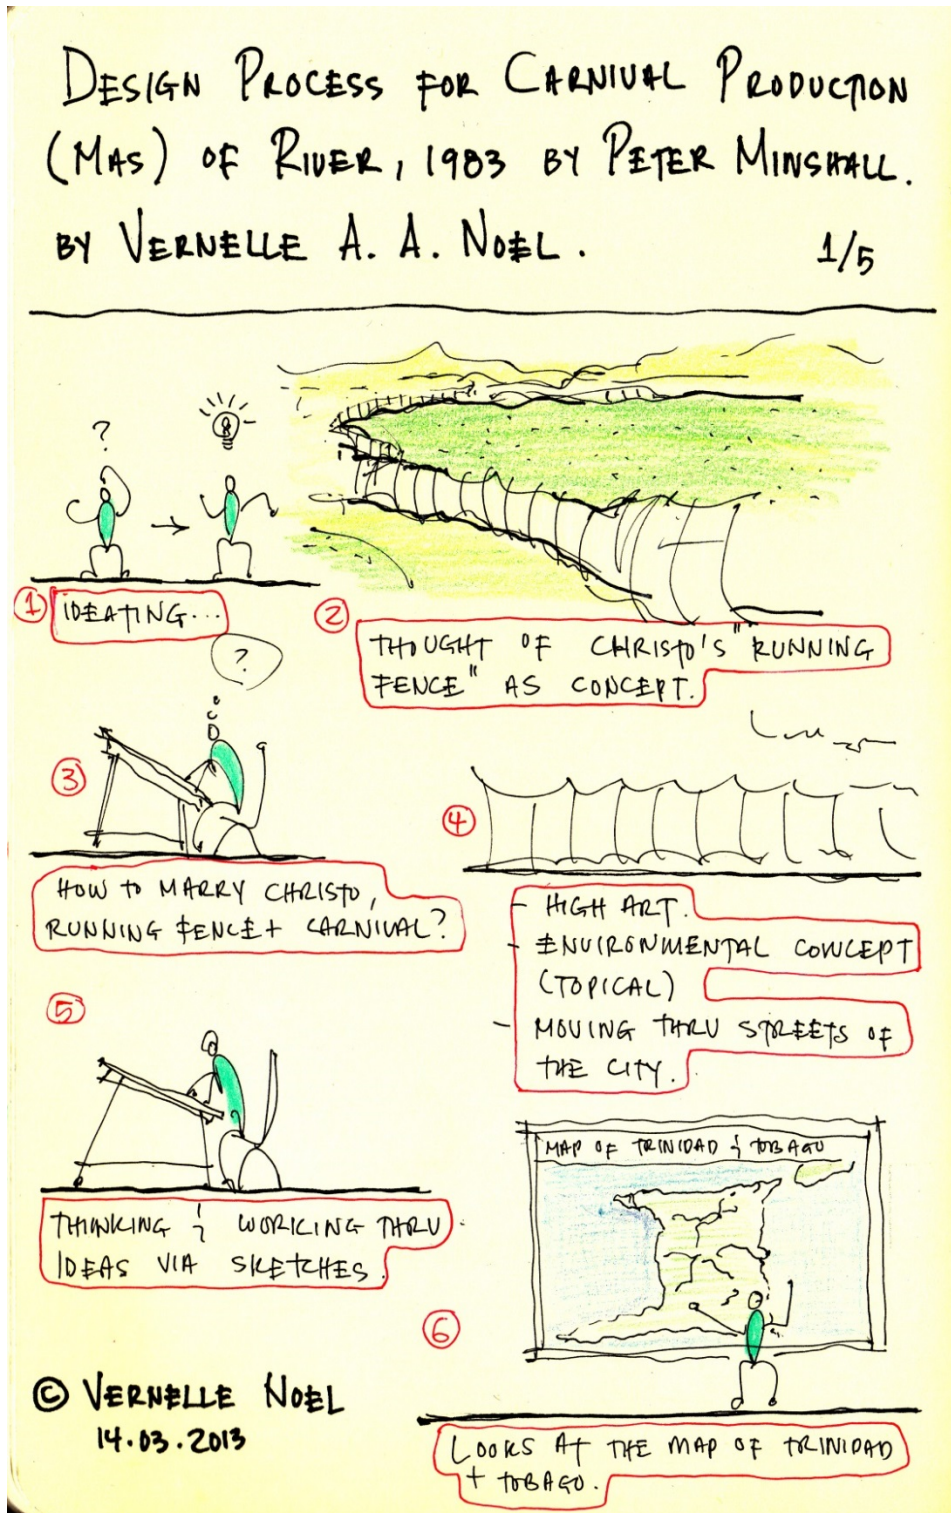 DESIGN PROCESS FOR CARNIVAL PRODUCTION
(MAS) OF RIVER, 1983 BY PETER MINSHALL.
BY VERNELLE A. A. NOEL.
1/5
?
1 IDEATING...
2
THOUGHT OF CHRISTO'S "RUNNING
FENCE" AS CONCEPT.
?
3
HOW TO MARRY CHRISTO,
RUNNING FENCE + CARNIVAL?
4
- HIGH ART.
- ENVIRONMENTAL CONCEPT
(TOPICAL)
- MOVING THRU STREETS OF
THE CITY.
5
THINKING & WORKING THRU
IDEAS VIA SKETCHES.
MAP OF TRINIDAD & TOBAGO
6
LOOKS AT THE MAP OF TRINIDAD
+ TOBAGO.
© VERNELLE NOEL
14.03.2013